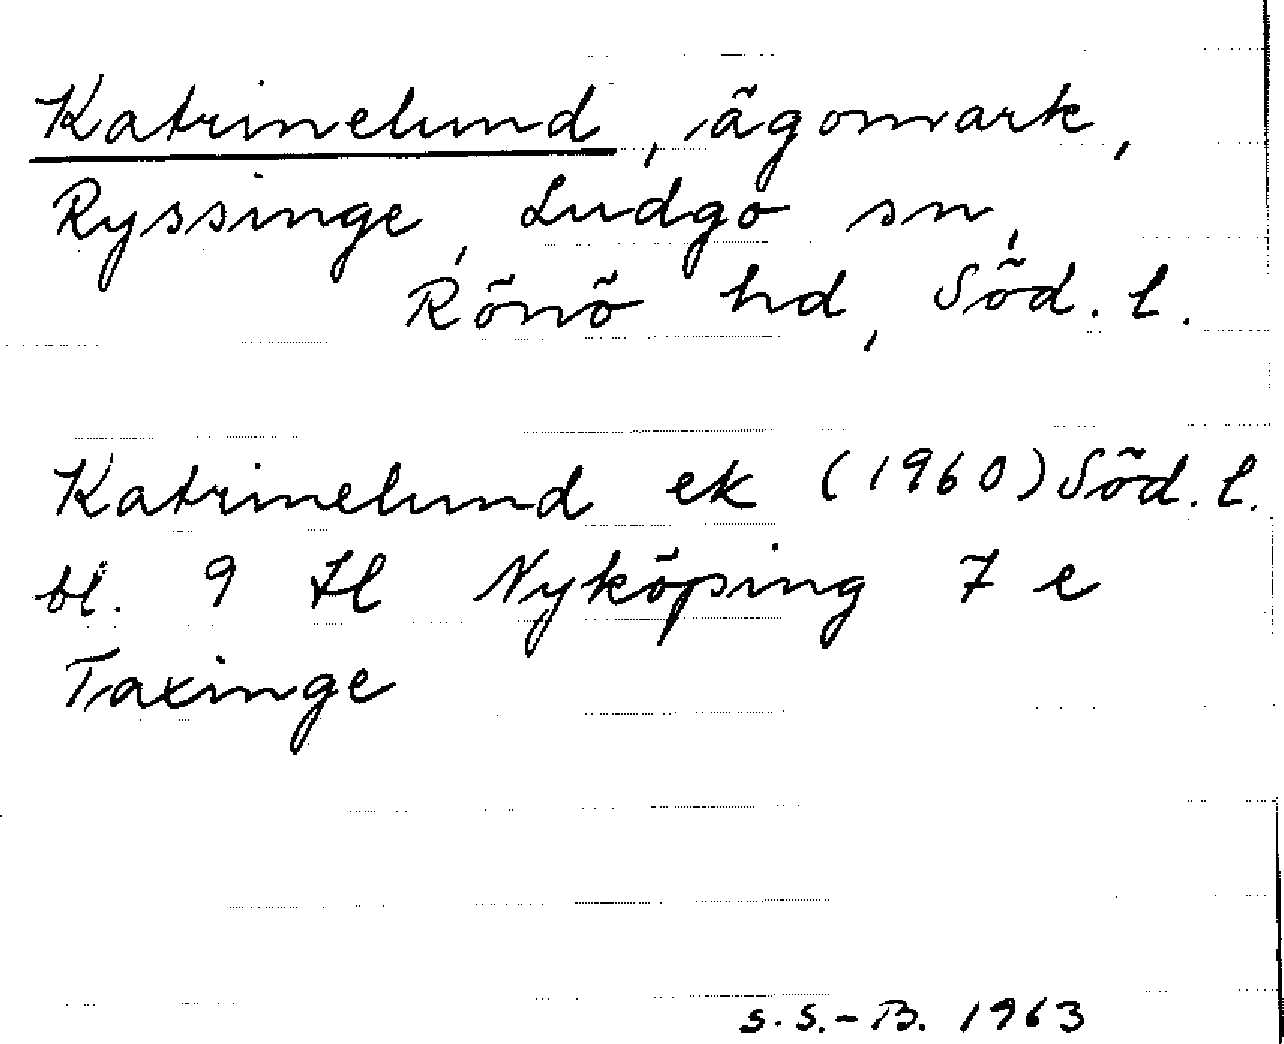 Katrinelund, ägomark,
Ryssinge, Ludgo sn,
Rönö hd, Söd. l.
Katrinelund ek (1960) Söd. l.
bl. 9 H Nyköping 7 e
Taxinge
S.S.-B. 1963